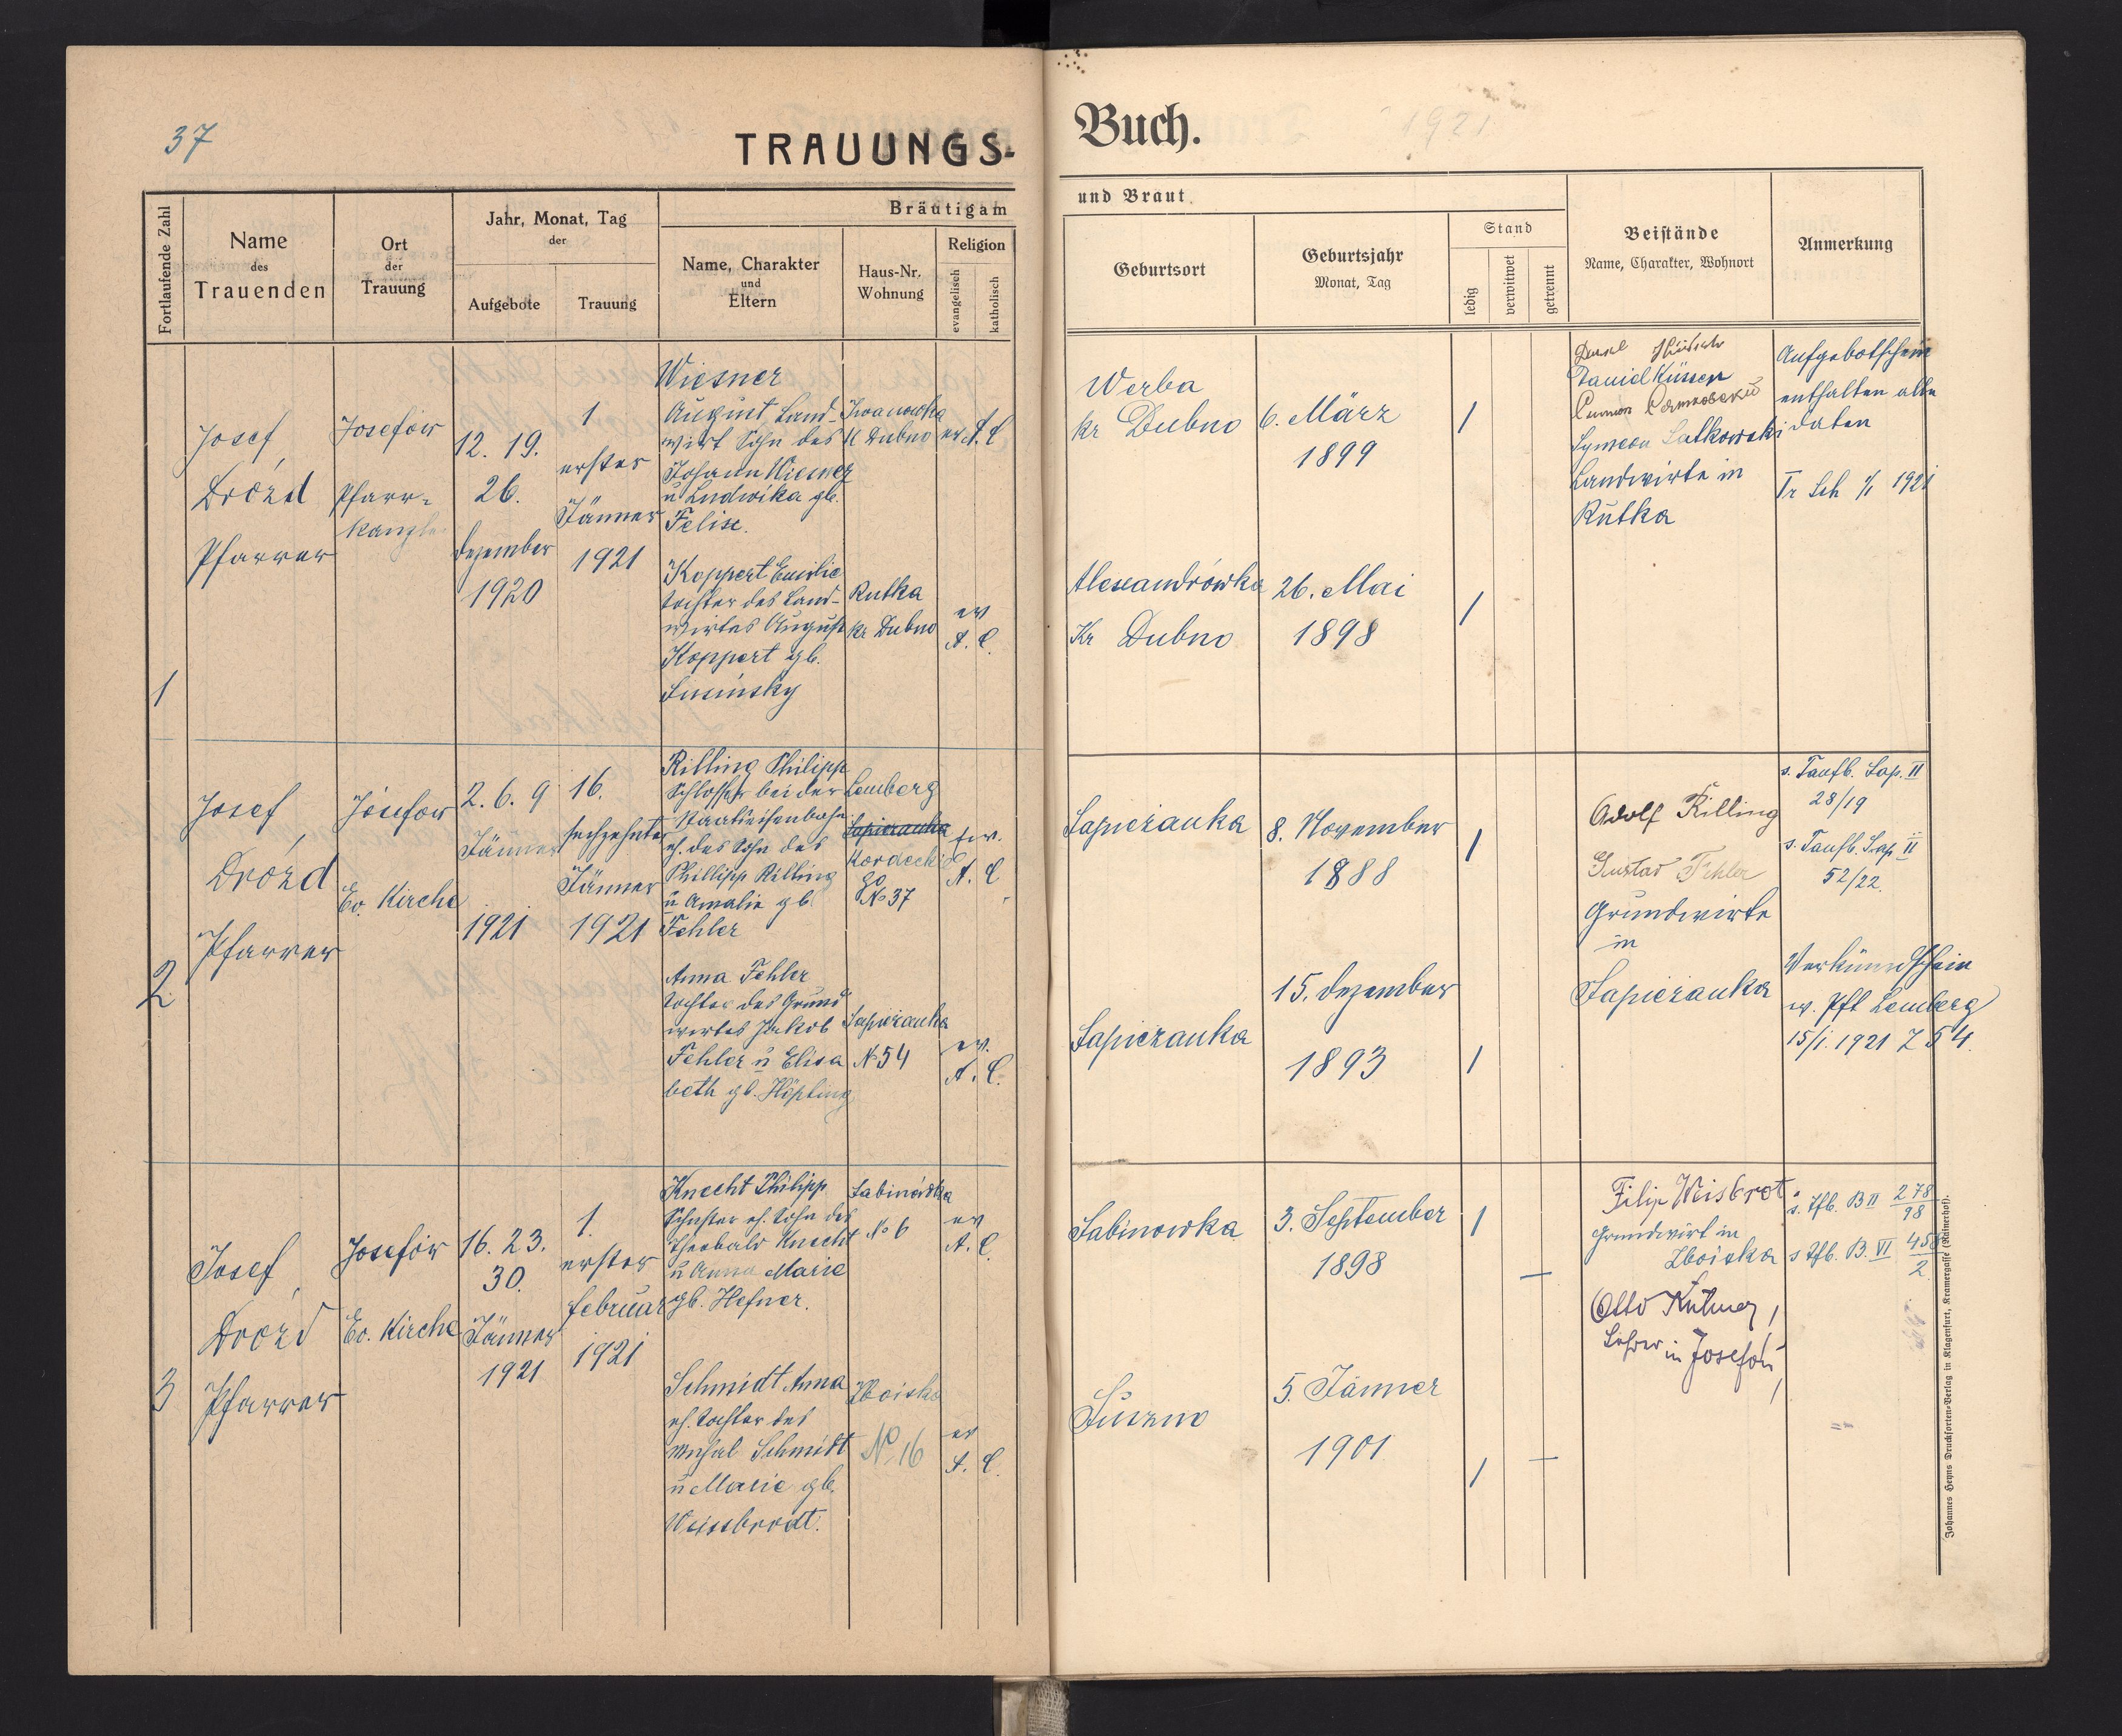 37
TRAUUNGS-
Buch.
1921
Fortlaufende Zahl
Name
des
Trauenden
Ort
der
Trauung
Jahr, Monat, Tag
der
Aufgebote
Trauung
Bräutigam
Name, Charakter
und
Eltern
Haus-Nr.
Wohnung
Religion
evangelisch
katholisch
und Braut
Geburtsort
Geburtsjahr
Monat, Tag
Stand
ledig
verwitwet
getrennt
Beistände
Name, Charakter, Wohnort
Anmerkung
1
Josef
Drózd
Pfarrer
Josefow
Pfarr-
kanzlei
12. 19.
26.
Dezember
1920
1
erster
Jänner
1921
Wiesner
August Land-
wirt Sohn des
Johann Wiesner
u Ludwika gb.
Felise.
Iwanowka
ev A. C
Koppert Emilie
tochter des Land-
wirtes August
Koppert gb.
Rutka
kr Dubno
ev
A. C.
Werba
kr Dubno
6. März
1899
1
Alexandrówka
Kr Dubno
26. Mai
1898
1
Daniel
Symeon
Landwirte in
Rutka
Aufgebotschein
enthalten alle
daten
Tr Sch 1/1 1921
2
Josef
Drózd
Pfarrer
Josefow
Ev. Kirche
2. 6. 9
Jänner
1921
16.
sechzehnter
Jänner
1921
Rilling Philipp
Schlosser bei der
Staatseisenbahn
eh. des Sohn des
Phillipp Rilling
u Amalie gb
Fehler
Lemberg
Sapiezanka
No 37
ev.
A. C
Anna Fehler
tochter des Grund
wirtes Jakob
Fehler u Elisa
beth gb. Höpting
Sapiezanka
No 54
ev.
A. C.
Sapiezanka
8. November
1888
1
Sapiezanka
15. Dezember
1893
1
Adolf Rilling
Gustav Fehler
Grundwirte
in
Sapiezanka
s. Taufb. Sap. II
28/19
s. Taufb. Sap II
52/22.
Verkündschein
v. Pft Lemberg
15/1. 1921 Z 54.
3
Josef
Drozd
Pfarrer
Josefow
Ev. Kirche
16. 23.
30.
Jänner
1921
1.
erster
februar
1921
Knecht Philipp
Schuster eh. Sohn des
Theobald Knecht
u Anna Marie
gb. Hefner.
Sabinówka
No 6
ev
A. C.
Schmidt Anna
eh. tochter des
Schmidt
u Marie gb.
Weissbrodt.
Zboiska
No 16
ev
A. C.
Sabinowka
3. September
1898
1
Suszno
5. Jänner
1901
1
Filip Weisbrot
Grundwirt in
Zboiska
Otto
Lehrer in Josefow
s. Tfb. B II 278/98
s Tfb. B. VI 458/2
Johannes Heyns Drucksorten-Verlag in Klagenfurt, Kramergasse (Rainerhof).